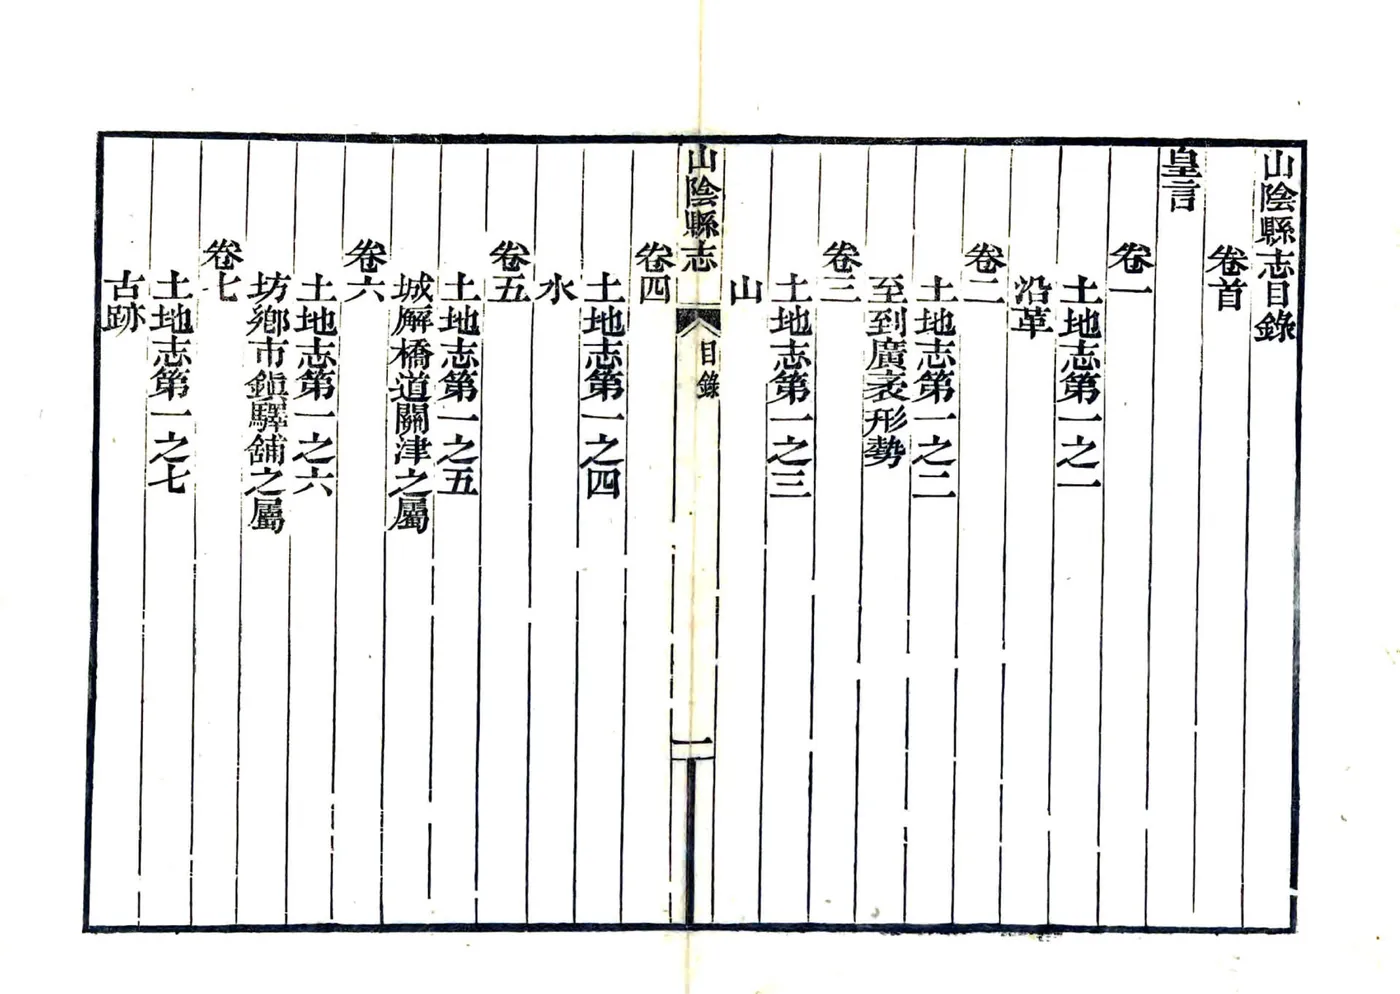 山陰縣志目錄
卷首
皇言
卷一
土地志第一之一
沿革
卷二
土地志第一之二
至到廣袤形勢
卷三
土地志第一之三
山
山陰縣志
目錄
一
卷四
土地志第一之四
水
卷五
土地志第一之五
城廨橋道關津之屬
卷六
土地志第一之六
坊鄉市鎮驛舖之屬
卷七
土地志第一之七
古跡